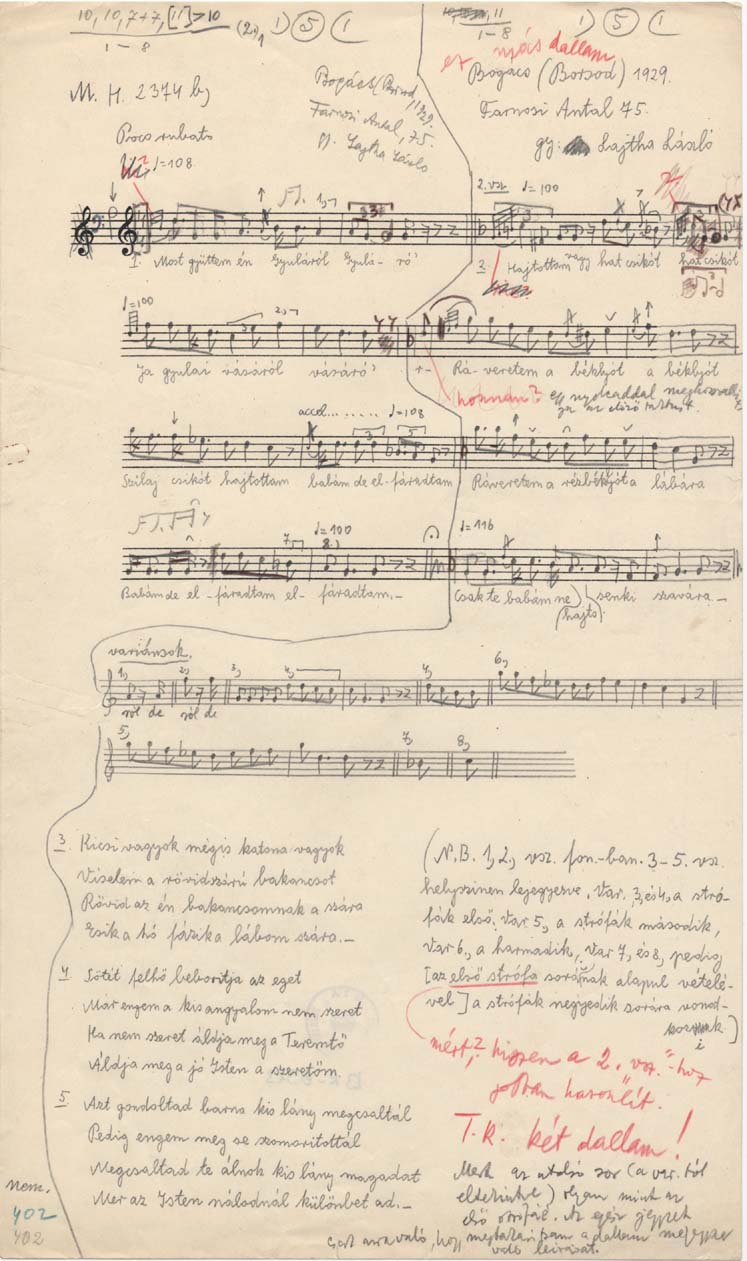 10, 10, 7+7, [11] > 10
1 – 8
(2.)
1) 5 (1
11
1 – 8
1) 5 (1
ez dallam
M. H. 2374 b)
Bogács (Borsod), 1929.
Farnosi Antal, 75.
gy. Lajtha László
Bogács (Borsod) 1929.
Farnosi Antal 75.
gy: Lajtha László
Poco rubato
♩=108
2. vsz ♩=100
1. Most gyüttem én Gyuláról Gyulá – ró'
2. Hajtottam vagy hat csikót hat csikót
♩=100
Ja gyulai vásáról vásáró'
r- Rá-veretem a békbjót a békbjót
honnan?
accel........ ♩=108
Szilaj csikót hajtottam babám de el-fáradtam
Ráveretem a rézbékjót a lábára
♩=100
♩=116
Babám de el – fáradtam el – fáradtam.–
Csak te babám ne (hajts) senki szavára –
variánsok.
1, 2, 3, 4, 4, 6,
ról de ról de
5, 7, 8,
3 Kicsi vagyok mégis katona vagyok
Viselem a rövidszárú bakancsot
Rövid az én bakancsomnak a szára
Esik a hó fázik a lábom szára. –
4 Sötét felhő beborítja az eget
Már engem a kisangyalom nem szeret
Ha nem szeret áldja meg a Teremtő
Áldja meg a jó Isten a szeretőm.
5 Azt gondoltad barna kis lány megcsaltál
Pedig engem meg se szomorítottál
Megcsaltad te álnok kis lány magadat
Mer az Isten nálodnál különbet ad. –
(N.B. 1, 2, vsz. fon.-ban. 3–5. vsz.
helyszinen lejegyezve. Var. 3, és 4, a stró-
fák első, Var. 5, a strófák második,
Var 6, a harmadik, Var 7, és 8, pedig
[az első strófa sorának alapul vételé-
vel] a strófák negyedik sorára vonat-
koznak.)
miért? hiszen a 2. vsz.-hoz
jobban hasonlít.
T.R. két dallam!
Mert az utolsó sor (a var. től
eltekintve) olyan mint az
első Az egész
arra való, hogy a dallam
leírását.
nem.
402
402